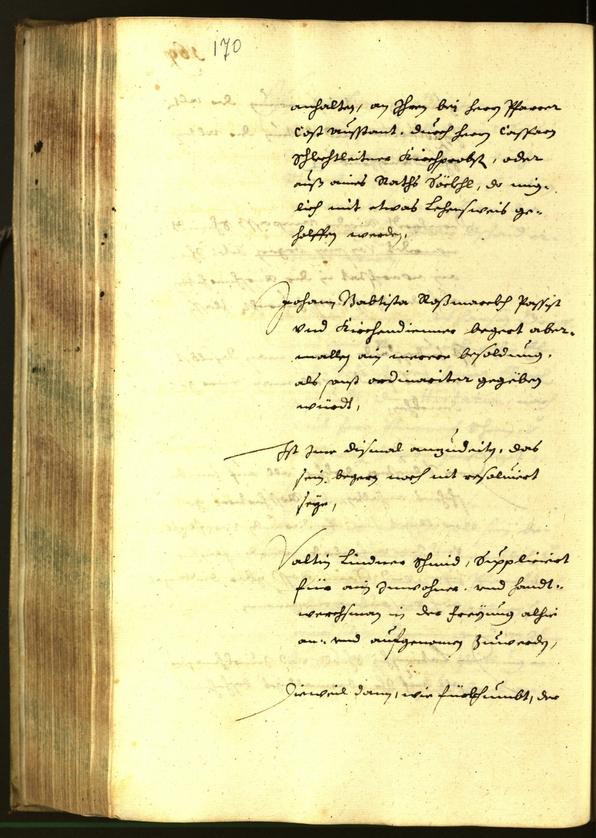 170
anhalten, an Ihren bei herrn Pfarrer
Cost ausstant, durch herrn Casparn
Schlechtleitner Kirchprobst, oder
auß aines Raths Säckhl, do müg-
lich mit etwas Lehensweis ge-
holffen werden,
Johann Babtista Roßmareckh Passist
vnd Kirchendienner begert aber-
mallen ain merere besoldung,
als sonst ordinariter gegeben
würdt,
Ist Ime dismal anzudeiten, das
sein begern noch nit resoluiert
seye,
Valtin Lindner Schmid, Suppliciert
für ain Inwohner vnd handt-
werchsman in der freyung alhie
an- vnd aufgenomen zuwerden,
Dieweil dann, wie fürkhumbt, der